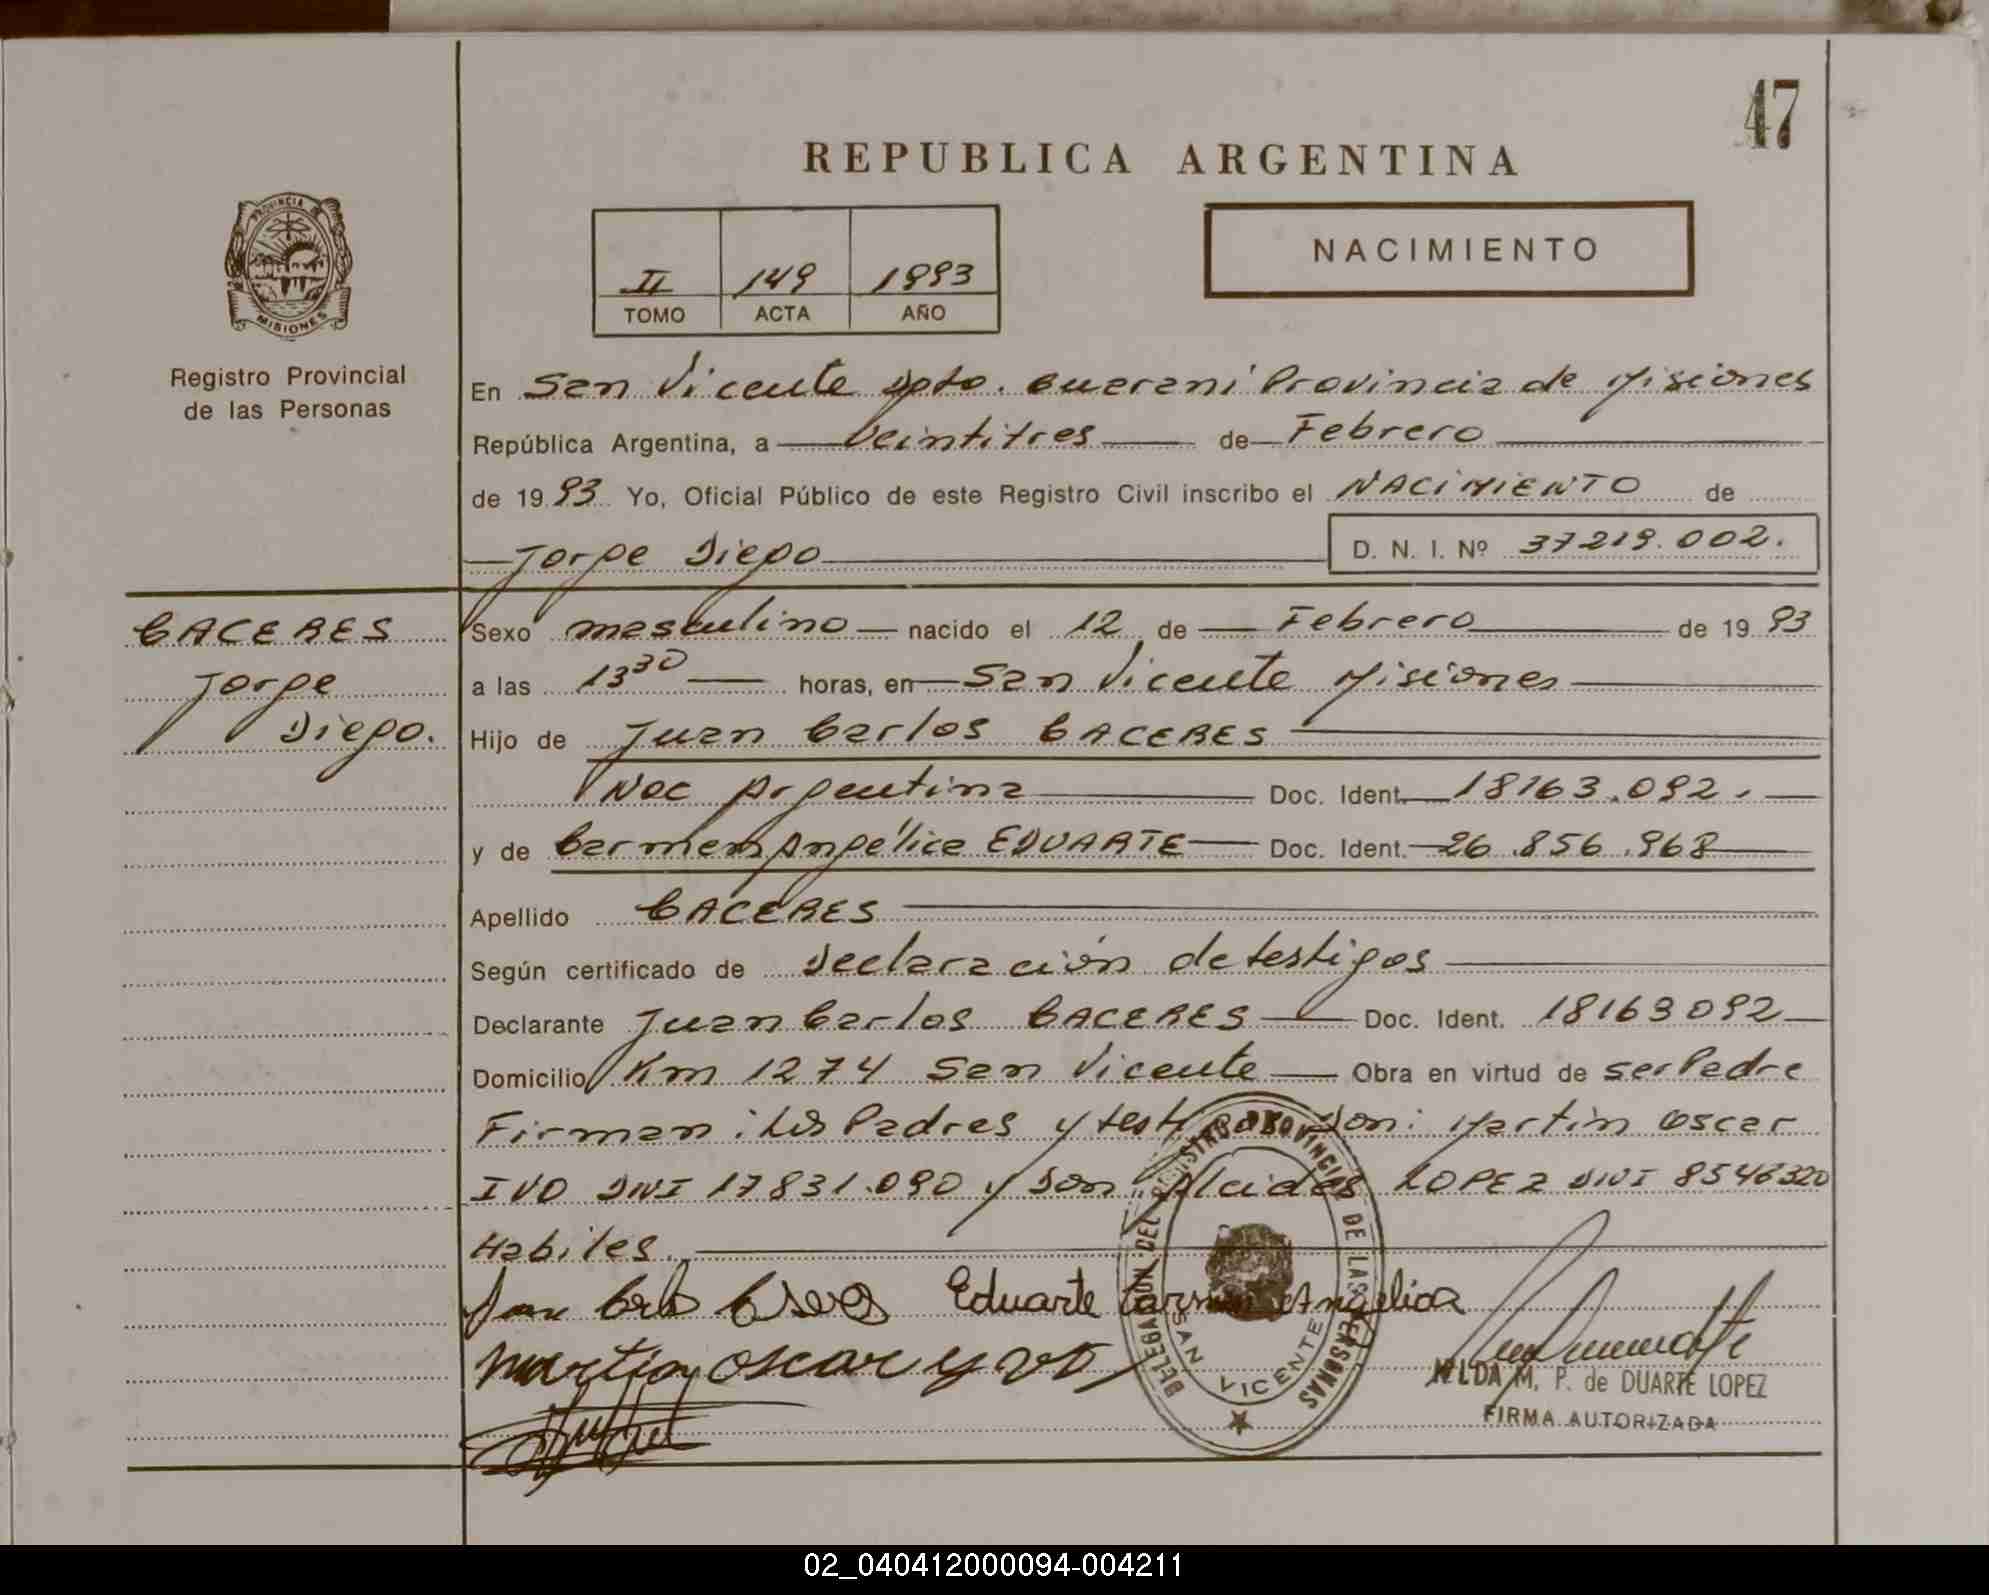 47
REPUBLICA ARGENTINA
NACIMIENTO
II 149 1993
TOMO ACTA AÑO
PROVINCIA DE
MISIONES
Registro Provincial
de las Personas
En San Vicente Dpto. Guarani Provincia de Misiones
República Argentina, a Veintitres de Febrero
de 1993 Yo, Oficial Público de este Registro Civil inscribo el NACIMIENTO de
Jorge Diego D. N. I. Nº 37219.002.
CACERES
Jorge
Diego.
Sexo masculino nacido el 12 de Febrero de 1993
a las 13 30 horas, en San Vicente Misiones
Hijo de Juan Carlos CACERES
Nac Argentina Doc. Ident. 18163.092.
y de Carmen Angélica EDUARTE Doc. Ident. 26.856.968
Apellido CACERES
Según certificado de Declaración de testigos
Declarante Juan Carlos CACERES Doc. Ident. 18163092
Domicilio Km 1274 San Vicente Obra en virtud de ser Padre
Firman: Los Padres y testigos Don: Martin Oscar
IVO DNI 17831.090 y Don Alcides LOPEZ DNI 8546320
Habiles.
Eduarte Carmen Angelica
Martin oscar yvo
DELEGACION DEL REGISTRO PROVINCIAL DE LAS PERSONAS
SAN VICENTE
M. P. de DUARTE LOPEZ
FIRMA AUTORIZADA
02_040412000094-004211